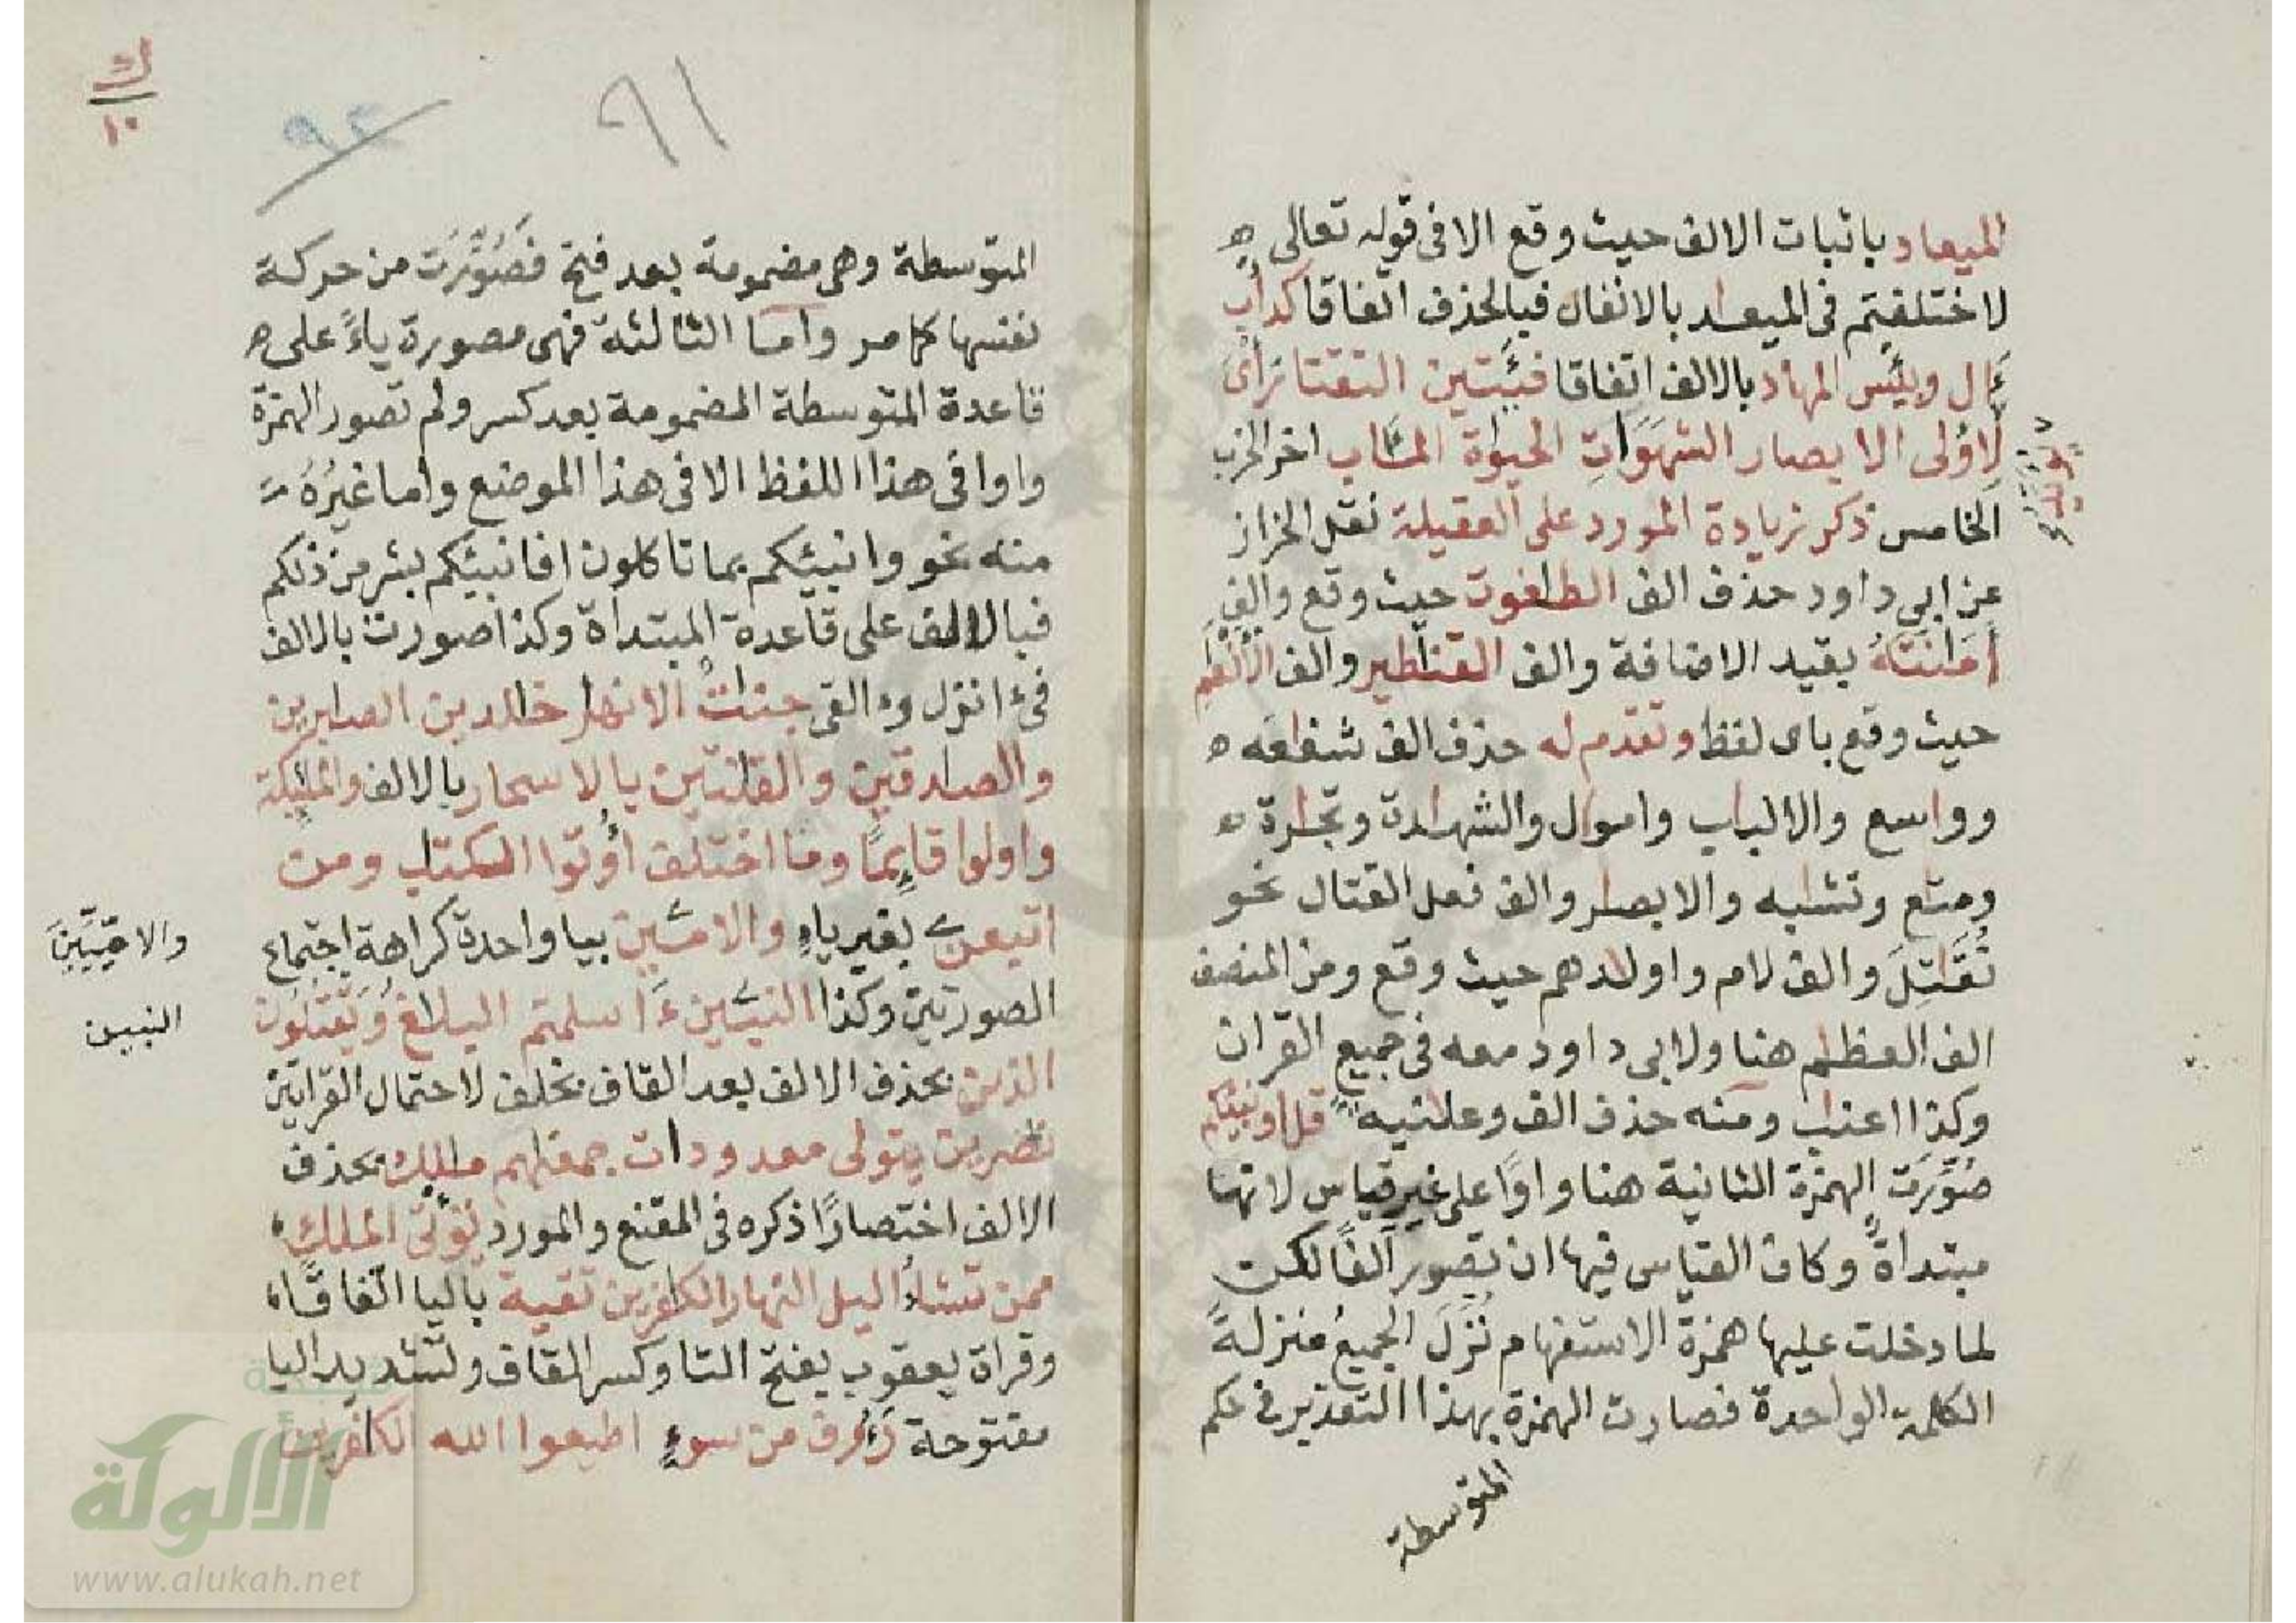 الميعاد باثبات الالف حيث وقع الا فى قوله تعالى ه
لاختلفتم فى الميعد بالانفال فبالحذف اتفاقا كدأب
ءال وبئس المهاد بالالف اتفاقا فئتين التقتا رأى
لاولى الابصار الشهوات الحيوة المـاب اخر الحزب
الخامس ذكر زيادة المورد على العقيلة نقل الخراز
عن ابي داود حذف الف الطاغوت حيث وقع والف
أمانته بقيد الاضافة والف القناطير والف الانعام
حيث وقع باى لفظ وتقدم له حذف الف شفاعه ه
وواسع والالباب واموال والشهادة وتجارة ه
ومتاع وتشابه والابصار والف فعل القتال نحو
تُقَاتِلَ والف لام واولادهم حيث وقع ومن المنصف
الف العظام هنا ولابى داود معه فى جميع القران
وكذا اعناب ومنه حذف الف وعلانيه قل اونبئكم
صُوِّرَت الهمزة الثانية هنا واوًا على غير قياس لانها
مبتداةً وكان القياس فيها ان تصور الفًا لكن
لما دخلت عليها همزة الاستفهام نُزِّلَ الجميعُ منزلةً
الكلمة الواحدة فصارت الهمزة بهذا التقدير فى حكم
المتوسطة
٩١
٩٢
ك
١٠
المتوسطة وهى مضمومة بعد فتح فصُوِّرَت من حركة
نفسها كما مر واما الثالثة فهى مصورة ياءً على ه
قاعدة المتوسطة المضمومة بعد كسر ولم تصور الهمزة
واوا فى هذا اللفظ الا فى هذا الموضع واما غيرُهُ
منه نحو وانبئكم بما تاكلون افانبئكم بشر من ذلكم
فبالالف على قاعدة المبتداة وكذا صورت بالالف
فى ءانزل وءالقى جنات الانهار خالدين الصابرين
والصادقين والقانتين بالاسحار بالالف والمليكة
واولوا قايمًا وما اختلف أوتوا الكتاب ومن
اتبعن بغير ياء والاميين بيا واحدة كراهة اجتماع
والاميّين
الصورتين وكذا النبيين ءاسلمتم البلاغ ويقتلون
النبين
الذين بحذف الالف بعد القاف بخلف لاحتمال القراتين
نصرين يتولى معدودات جمعناهم مالك بحذف
الالف اختصارًا ذكره فى المقنع والمورد تؤتى الملك
ممن تشاء اليل النهار الكافرين تقية باليا اتفاقًا
وقراة يعقوب بفتح التا وكسر القاف وتشديد اليا
مفتوحة رءوف من سوء اطيعوا الله الكافرين
شبكة
الألوكة
www.alukah.net